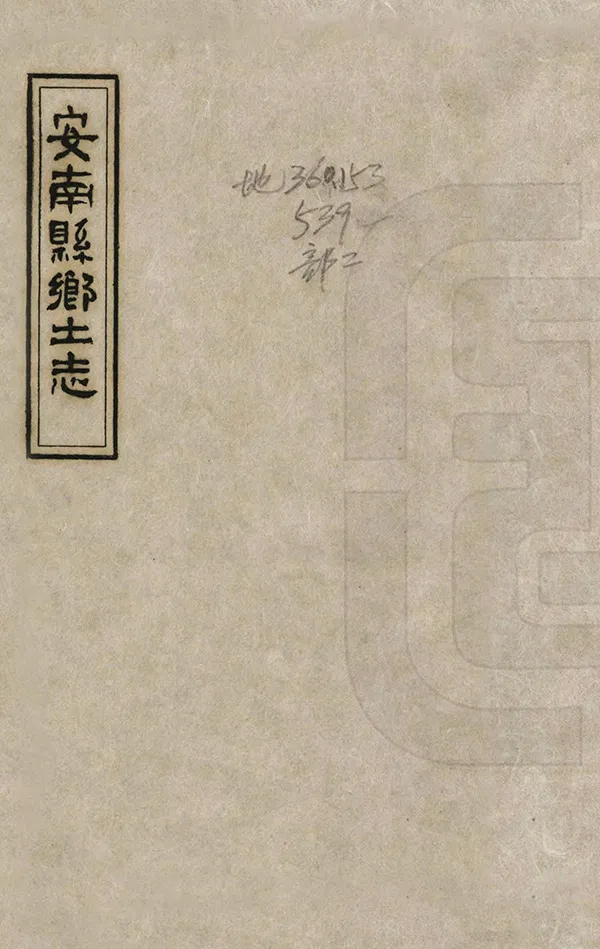 安南縣鄉土志
地360.153
539
部二